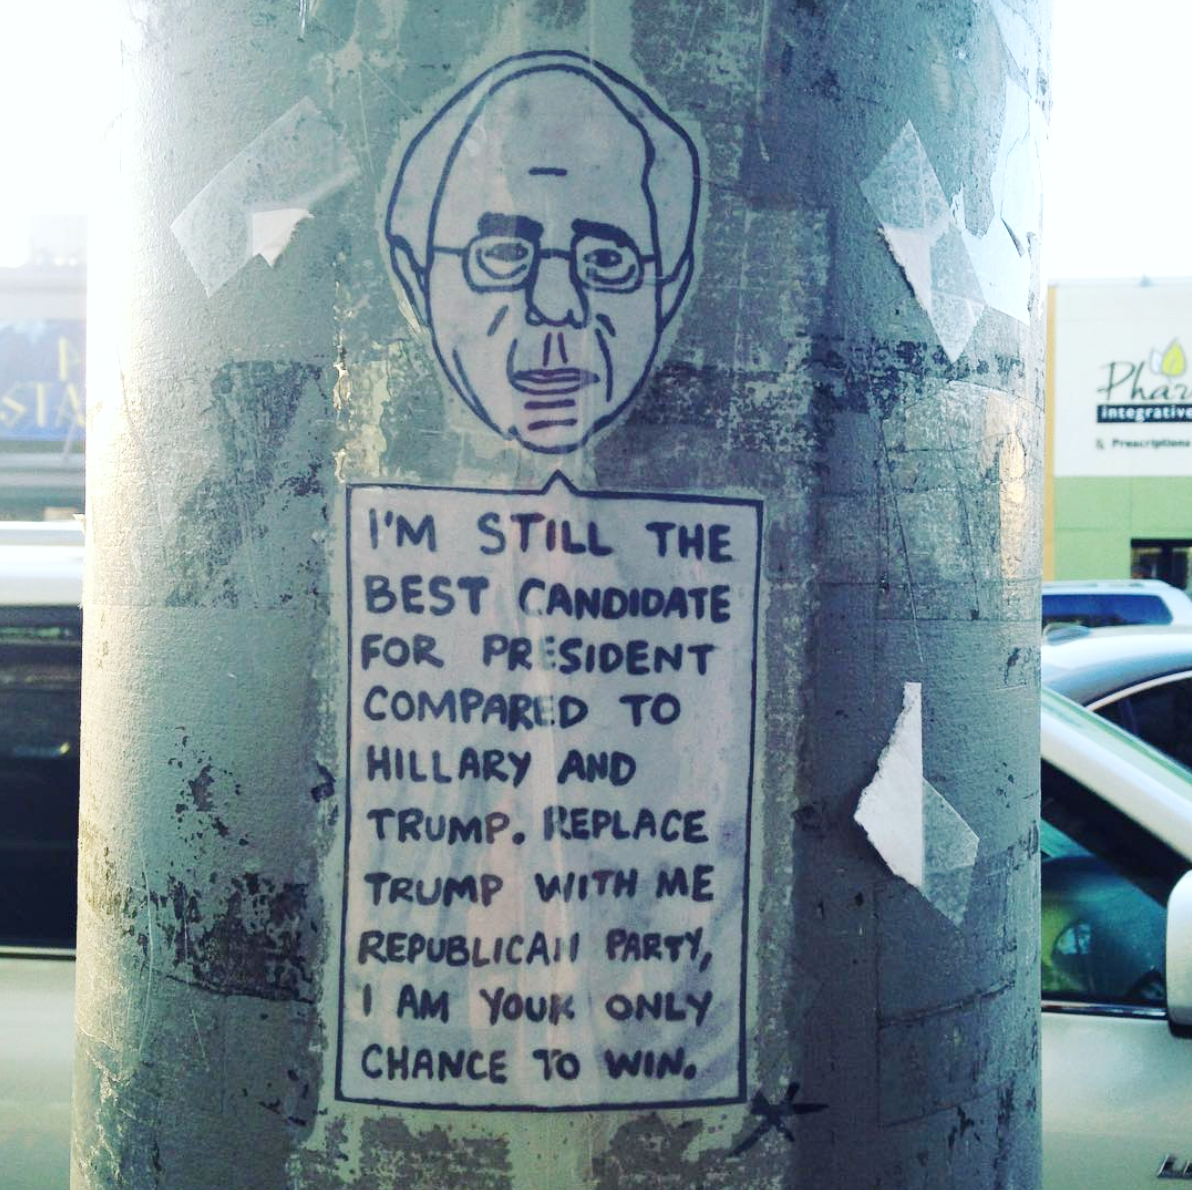 I'M STILL THE
BEST CANDIDATE
FOR PRESIDENT
COMPARED TO
HILLARY AND
TRUMP. REPLACE
TRUMP WITH ME
REPUBLICAN PARTY,
I AM YOUR ONLY
CHANCE TO WIN.
Phar
Integrative
Prescriptions
STA